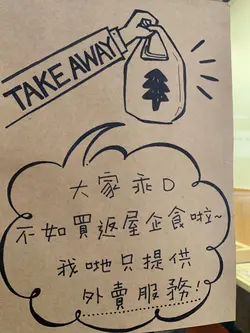 TAKE AWAY
大家乖D
不如買返屋企食啦~
我哋只提供
外賣服務!